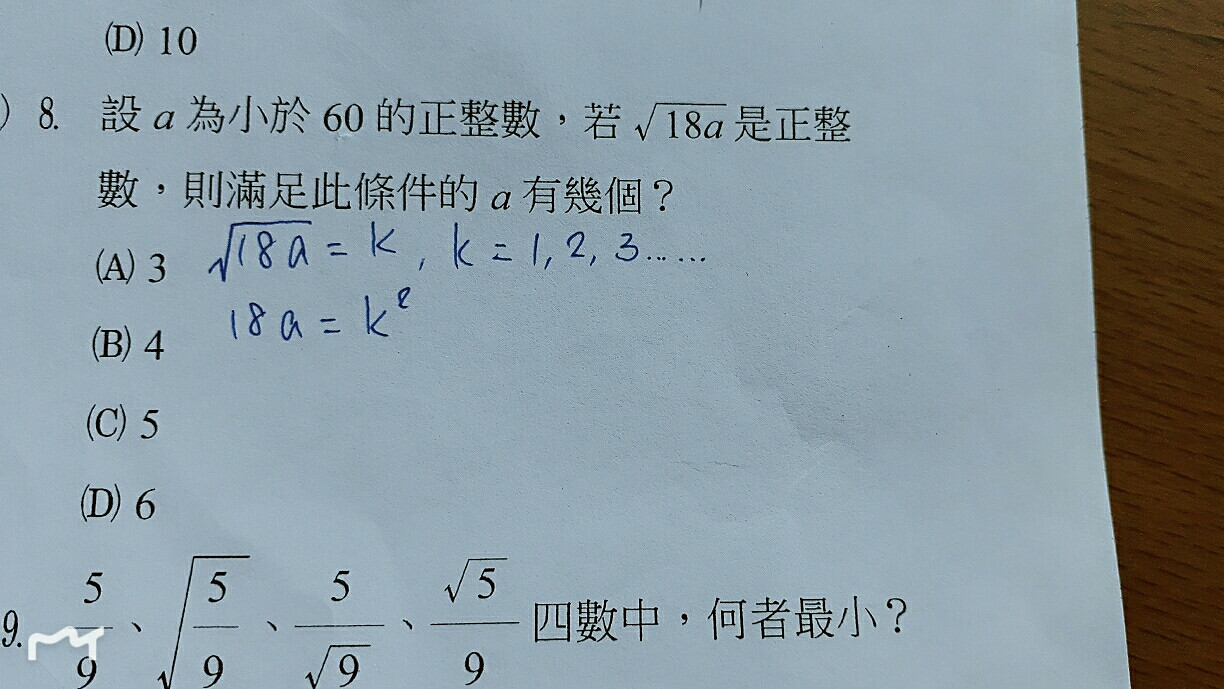 (D) 10
) 8. 設 a 為小於 60 的正整數，若 √18a 是正整
數，則滿足此條件的 a 有幾個？
(A) 3 √18a = k , k = 1, 2, 3......
18a = k²
(B) 4
(C) 5
(D) 6
9. 5/9、√(5/9)、5/√9、√5/9 四數中，何者最小？